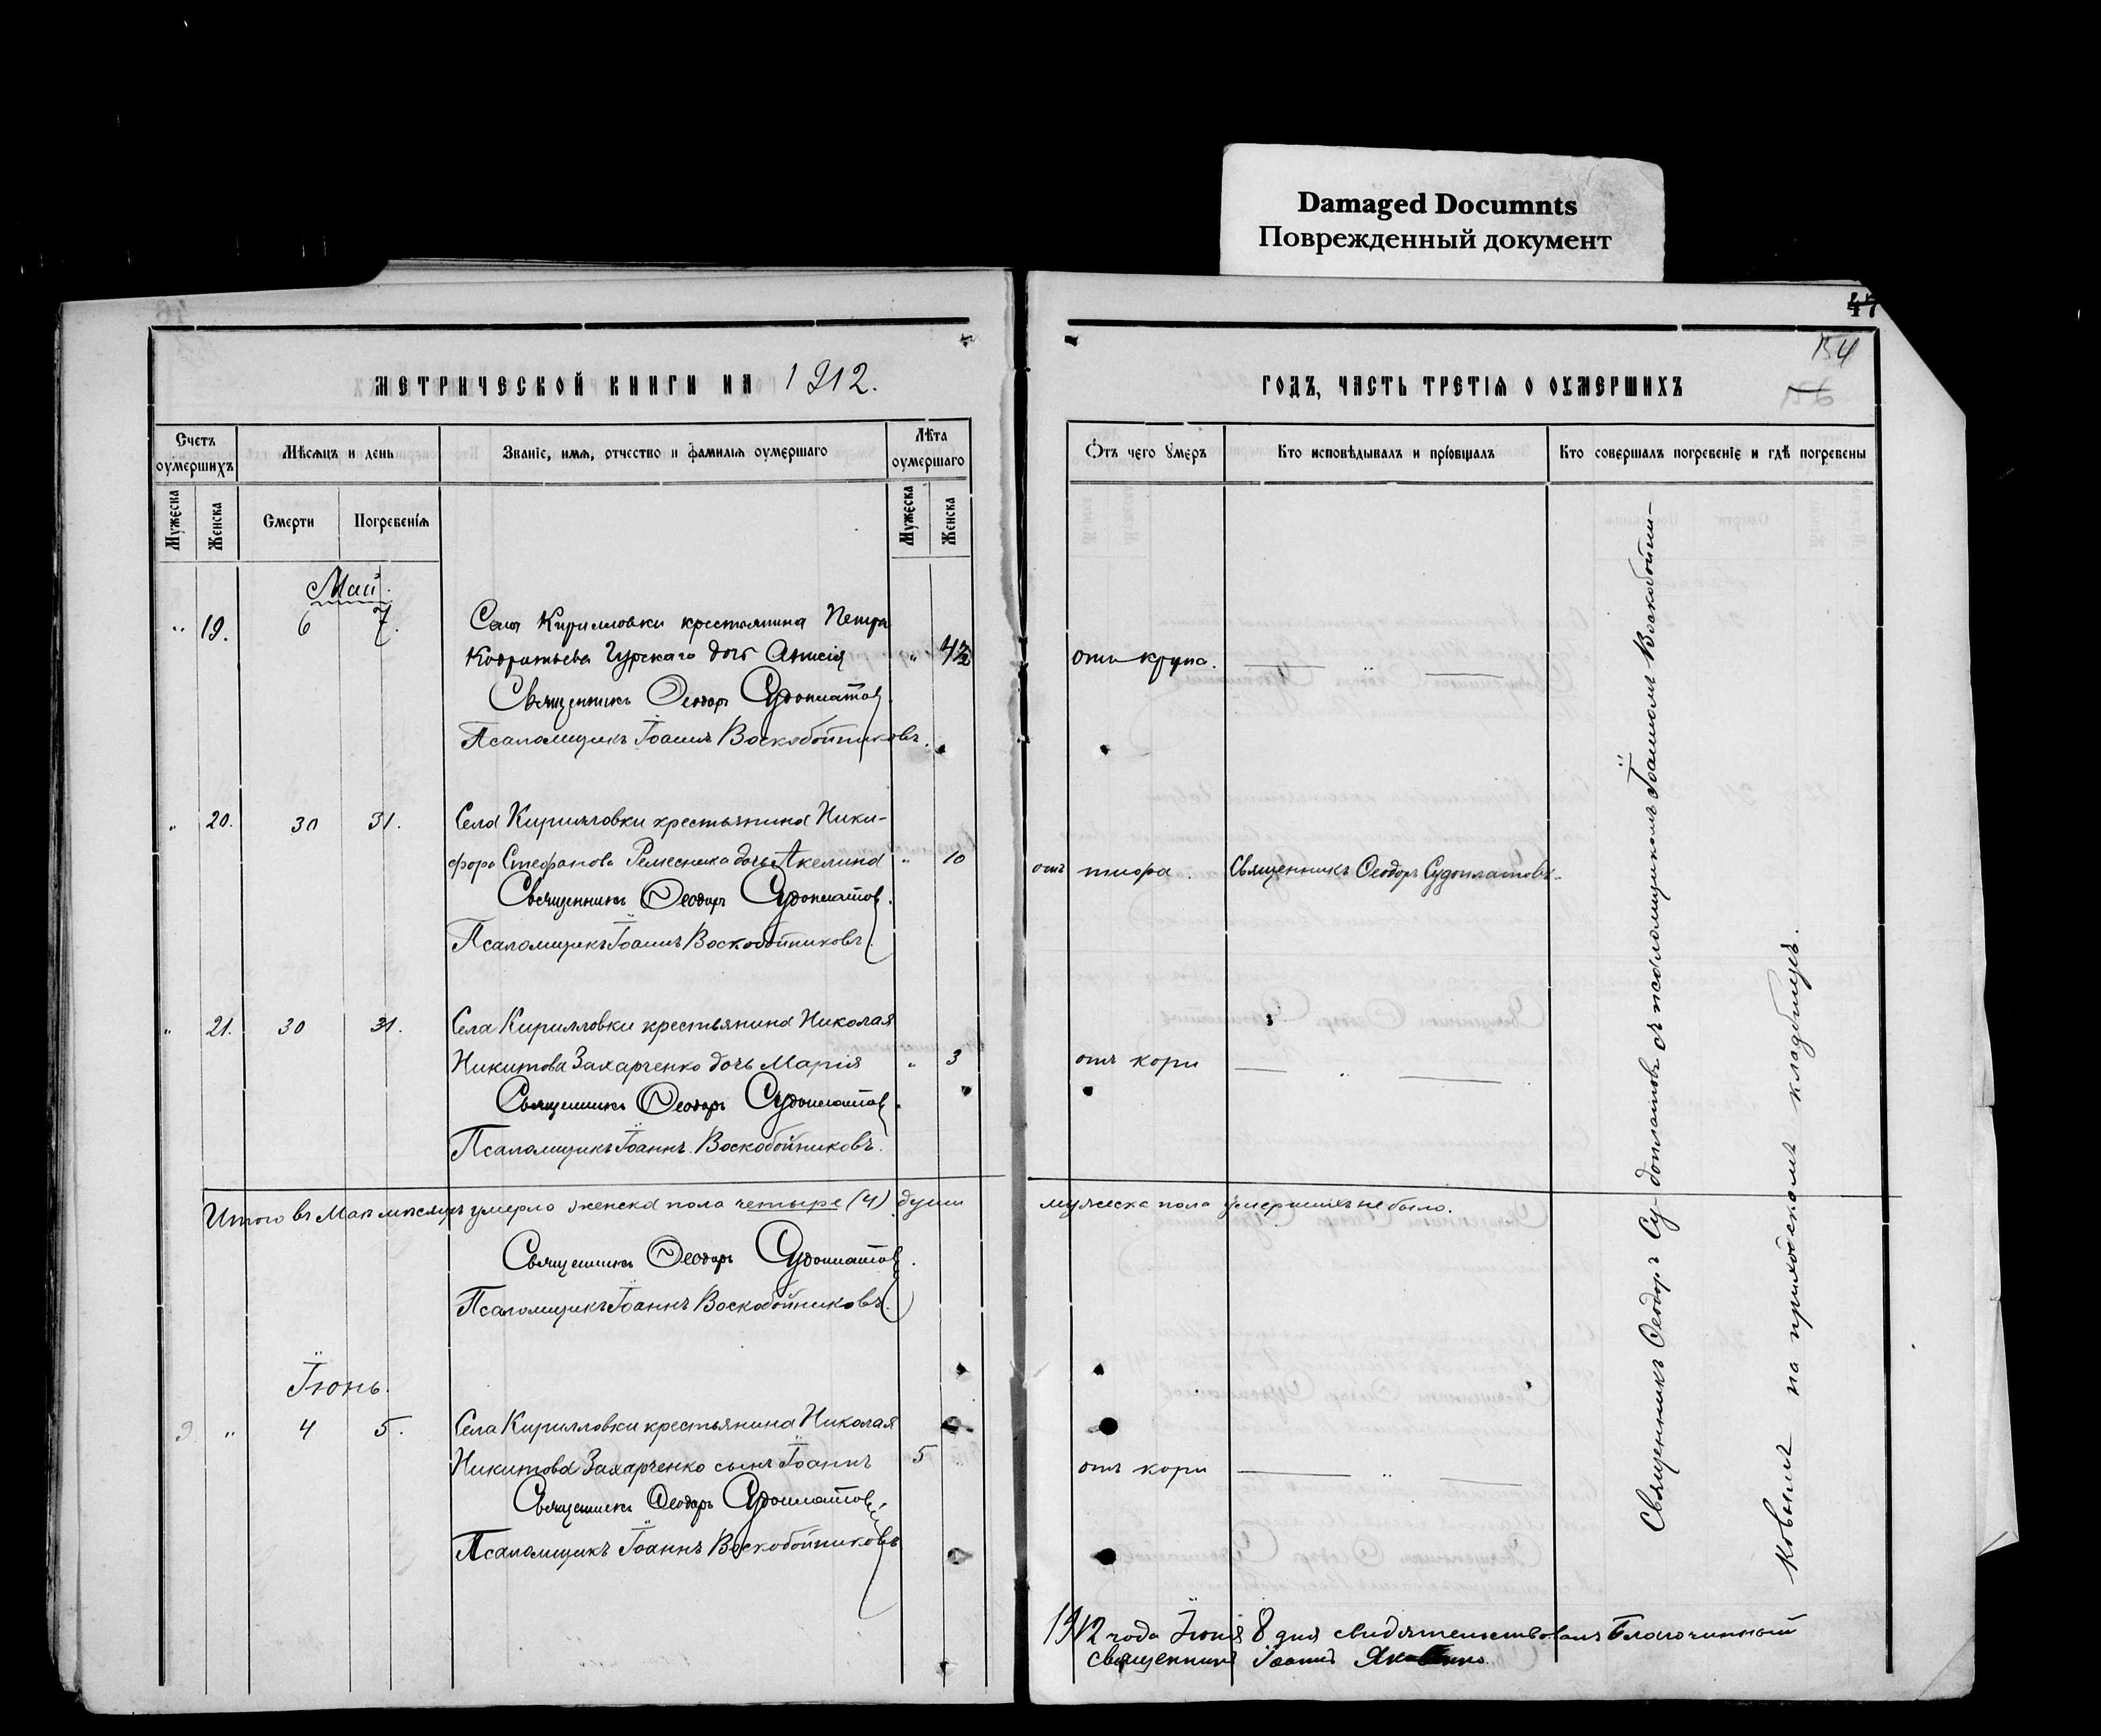 Damaged Documnts
Поврежденный документ
47
154
МЕТРИЧЕСКОЙ КНИГИ НА 1912.
ГОДЪ, ЧАСТЬ ТРЕТІЯ О ОУМЕРШИХЪ
Счетъ оумершихъ
Мѣсяцъ и день
Званіе, имя, отчество и фамилія оумершаго
Лѣта оумершаго
Отъ чего умеръ
Кто исповѣдывалъ и пріобщалъ
Кто совершалъ погребеніе и гдѣ погребены
Мужеска
Женска
Смерти
Погребенія
Мужеска
Женска
Май.
" 19. 6 7. Села Кирилловки крестьянина Петра
Кодратьева Гурскаго дочь Анисія " 4½ отъ крупа. — " —
Священникъ Ѳеодоръ Судоплатов.
Псаломщикъ Іоаннъ Воскобойниковъ.
" 20. 30 31. Села Кирилловки крестьянина Ники-
фора Стефанова Ремесника дочь Акелина " 10 отъ тифа. Священникъ Ѳеодоръ Судоплатовъ.
Священникъ Ѳеодоръ Судоплатов.
Псаломщикъ Іоаннъ Воскобойниковъ.
" 21. 30 31. Села Кирилловки крестьянина Николая
Никитова Захарченко дочь Марія " 3 отъ кори — " —
Священникъ Ѳеодоръ Судоплатов.
Псаломщикъ Іоаннъ Воскобойниковъ.
Итого въ Маѣ мѣсяцѣ умерло женска пола четыре (4) души мужеска пола умершихъ не было.
Священникъ Ѳеодоръ Судоплатов.
Псаломщикъ Іоаннъ Воскобойниковъ.
Іюнь.
9 " 4 5. Села Кирилловки крестьянина Николая
Никитова Захарченко сынъ Іоаннъ 5 " отъ кори — " —
Священникъ Ѳеодоръ Судоплатов.
Псаломщикъ Іоаннъ Воскобойниковъ
Священникъ Ѳеодоръ Судоплатовъ съ псаломщикомъ Іоанномъ Воскобойни-
ковымъ на приходскомъ кладбищѣ.
1912 года Іюня 8 дня свидѣтельствовалъ Благочинный
священникъ Іоаннъ